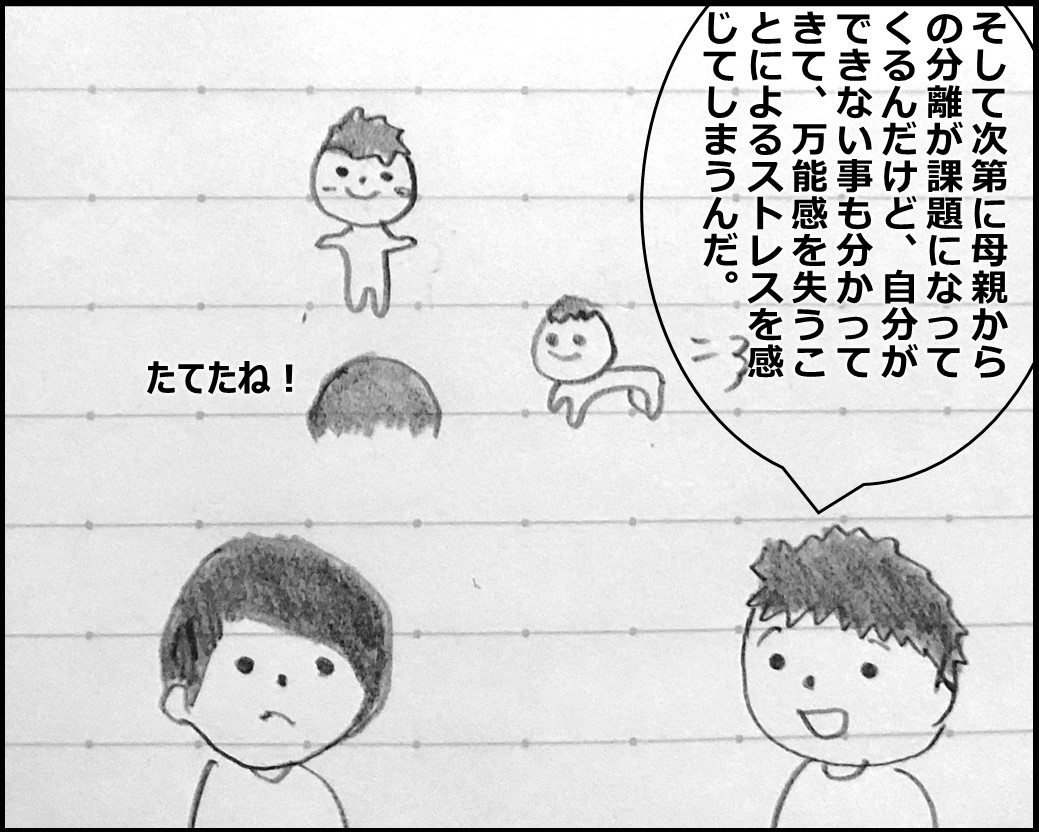 そして次第に母親から
の分離が課題になって
くるんだけど、自分が
できない事も分かって
きて、万能感を失うこ
とによるストレスを感
じてしまうんだ。
たてたね！